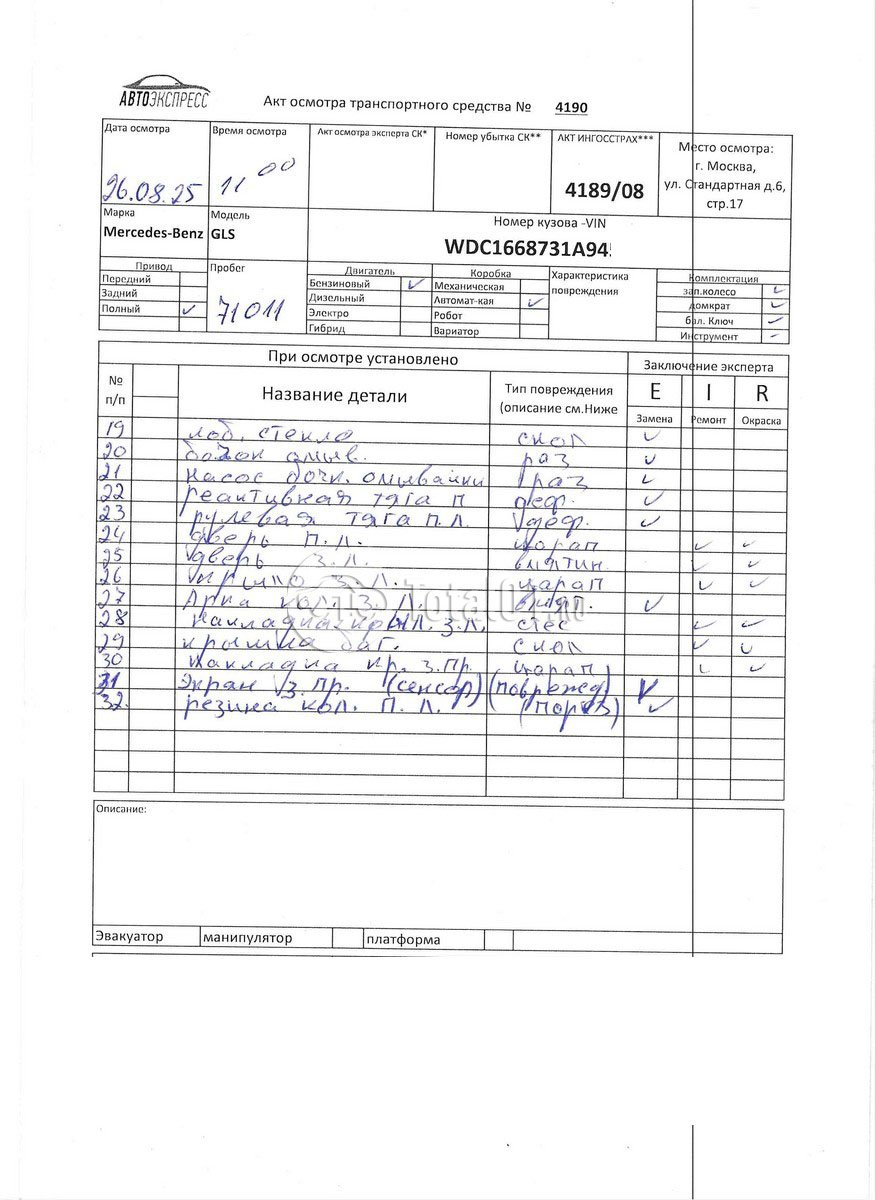 АВТОЭКСПРЕСС
Акт осмотра транспортного средства № 4190
Дата осмотра Время осмотра Акт осмотра эксперта СК* Номер убытка СК** АКТ ИНГОССТРАХ*** Место осмотра:
г. Москва,
26.08.25 11 00 4189/08 ул. Стандартная д.6,
стр.17
Марка Модель Номер кузова -VIN
Mercedes-Benz GLS WDC1668731A94
Привод Пробег Двигатель Коробка Характеристика Комплектация
Передний Бензиновый ✓ Механическая повреждения зап.колесо ✓
Задний Дизельный Автомат-кая ✓ домкрат ✓
Полный ✓ 71011 Электро Робот бал. Ключ ✓
Гибрид Вариатор Инструмент -
При осмотре установлено Заключение эксперта
№ п/п Название детали Тип повреждения (описание см.Ниже E I R
Замена Ремонт Окраска
19 лоб. стекло скол ✓
20 бачок омыв. раз ✓
21 насос бочк. омывайки раз ✓
22 реактивная тяга п деф. ✓
23 рулевая тяга п.л. деф. ✓
24 дверь п.л. царап ✓ ✓
25 дверь з.л. вмятин ✓ ✓
26 крыло з.л. царап ✓ ✓
27 Арка кол. з.л. ✓
28 накладка крыл. з.л. ✓ ✓
29 крышка баг. скол ✓ ✓
30 накладка кр. з.пр. царап ✓ ✓
31 Экран з.пр. (сенсор) (поврежд) ✓
32. резина кол. п.л. (порез) ✓
Описание:
Эвакуатор манипулятор платформа
Total01.ru